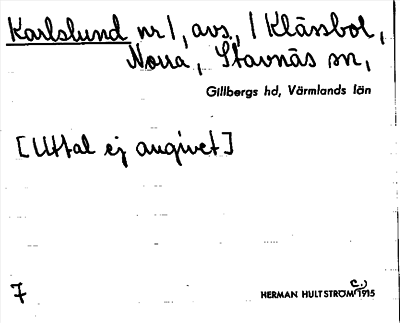 Karlslund nr 1, avs., / Klässbol,
Norra, Stavnäs sn,
Gillbergs hd, Värmlands län
[Uttal ej angivet]
7
HERMAN HULTSTRÖM c.) 1915